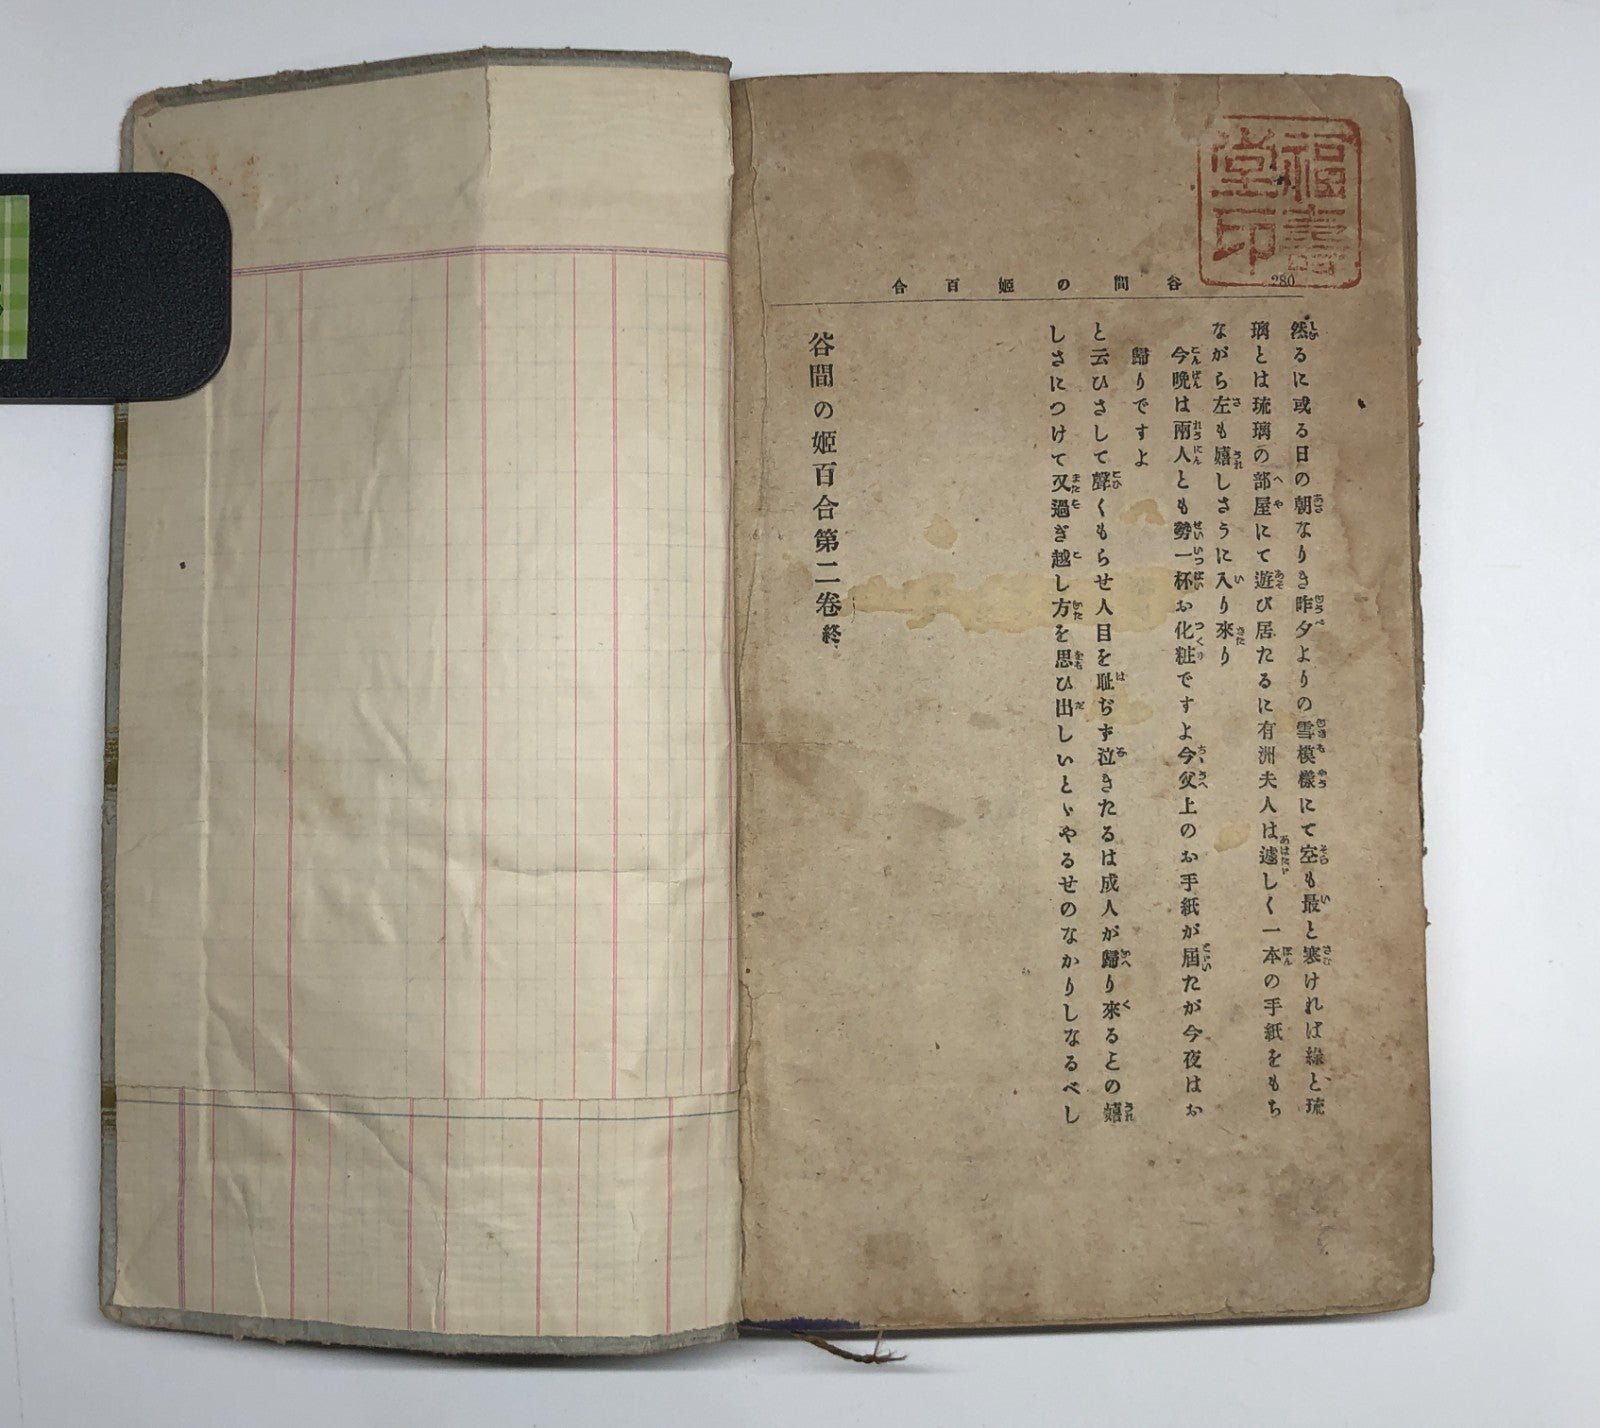 福壽
堂印
280
谷間の姫百合
然るに或る日の朝なりき昨夕よりの雪模樣にて空も最と寒ければ綠と琉
璃とは琉璃の部屋にて遊び居たるに有洲夫人は遽しく一本の手紙をもち
ながら左も嬉しさうに入り來り
今晩は兩人とも勢一杯お化粧ですよ今父上のお手紙が屆たが今夜はお
歸りですよ
と云ひさして聲くもらせ人目を耻ぢず泣きたるは成人が歸り來るとの嬉
しさにつけて又過ぎ越し方を思ひ出しいとゞやるせのなかりしなるべし
谷間の姫百合第二卷終